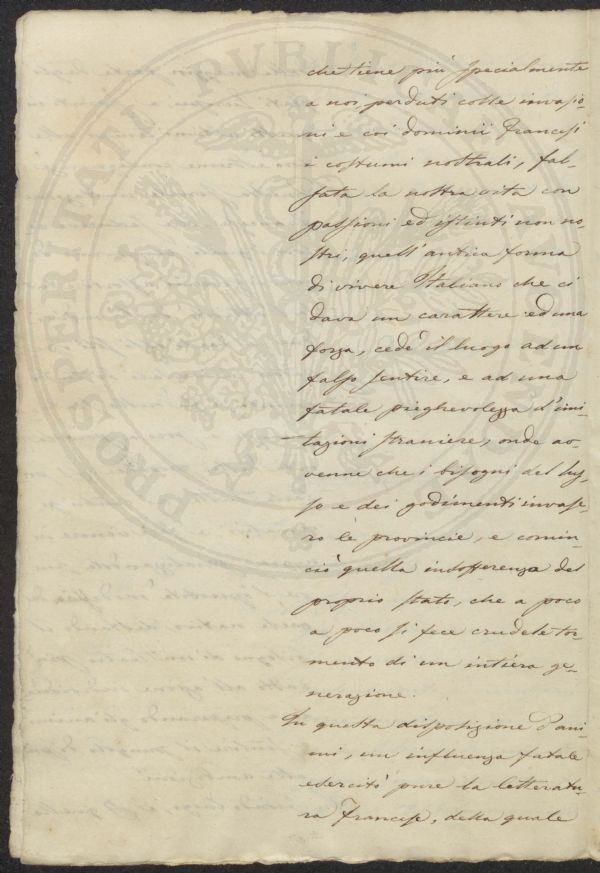 che tiene più specialmente
a noi, perduti colle invasio-
ni e coi dominii Francesi
i costumi nostrali, fal-
sata la nostra vita con
passioni ed istinti non no-
stri, quell'antica forma
di vivere Italiano che ci
dava un carattere ed una
forza, cedè il luogo ad un
falso sentire, e ad una
fatale pieghevolezza d'imi-
tazioni straniere, onde av-
venne che i bisogni del lus-
so e dei godimenti invase-
ro le provincie, e comin-
ciò quella indifferenza del
proprio stato, che a poco
a poco si fece crudele tor-
mento di un intiera ge-
nerazione.
In questa disposizione d'ani-
mi, un influenza fatale
esercitò pure la letteratu-
ra Francese, della quale
PROSPERITATI PVBLI